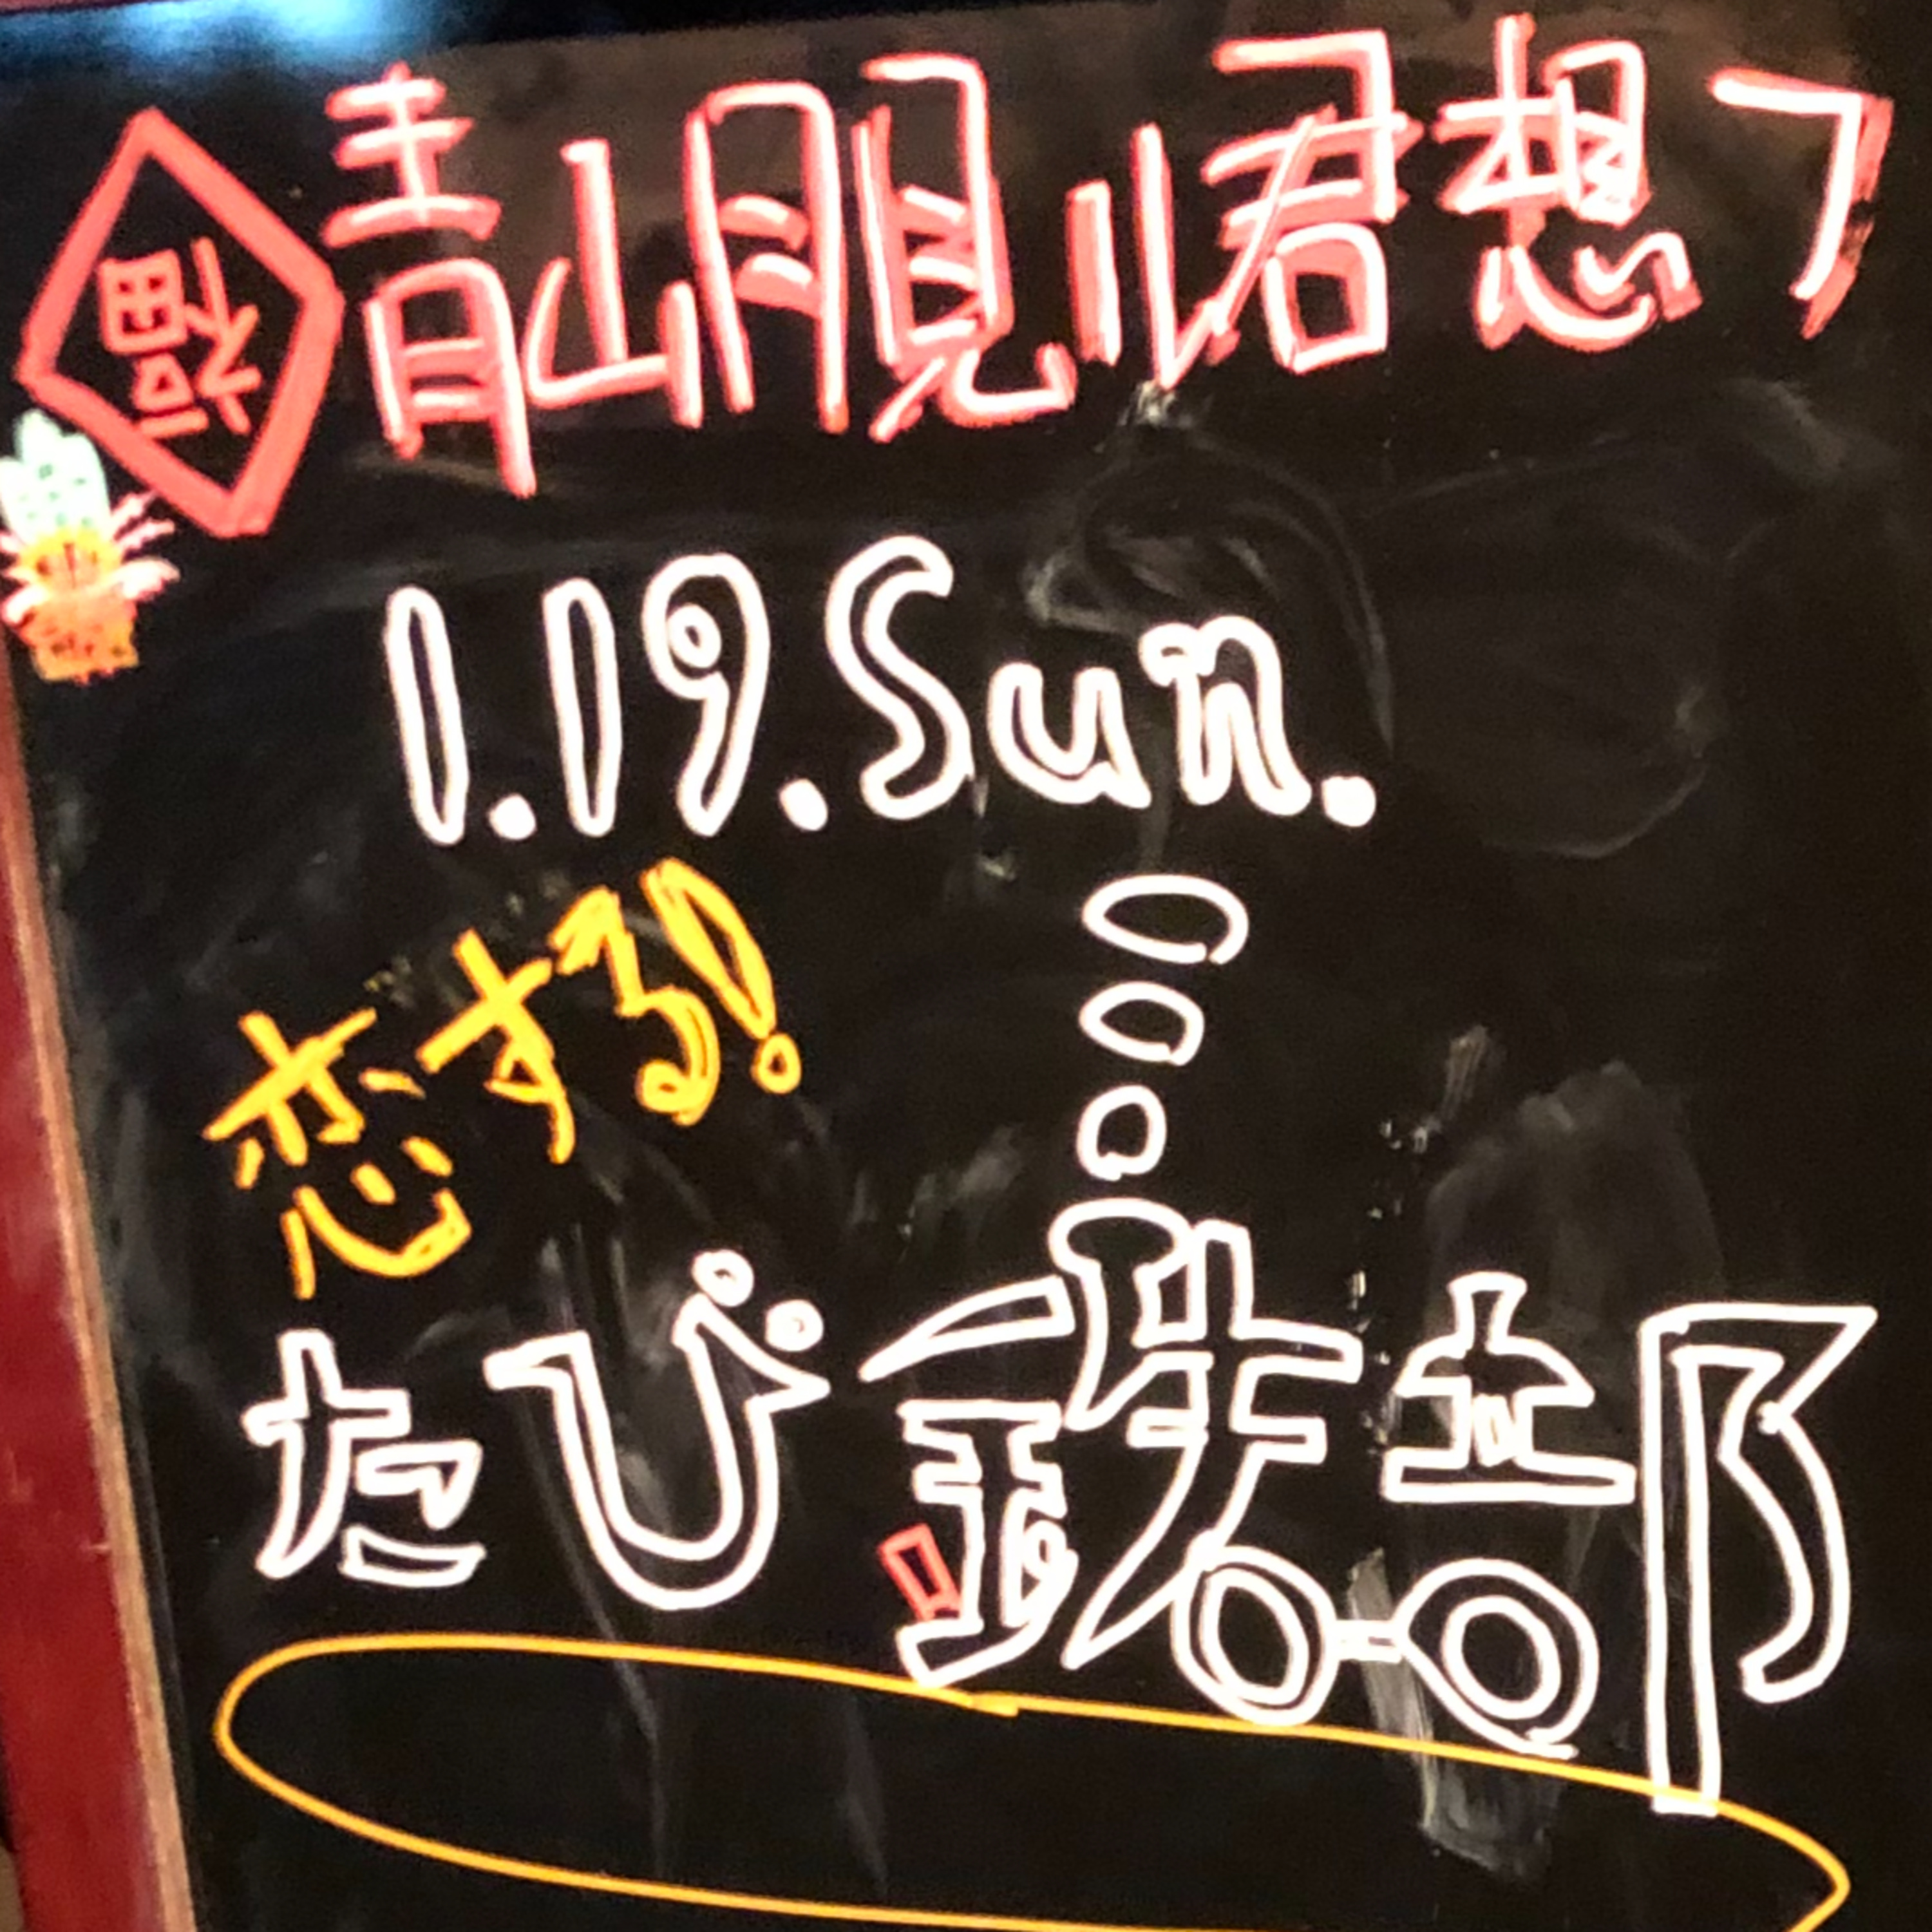 福
青山月見ル君想フ
1.19.Sun.
恋する!
たび鉄部